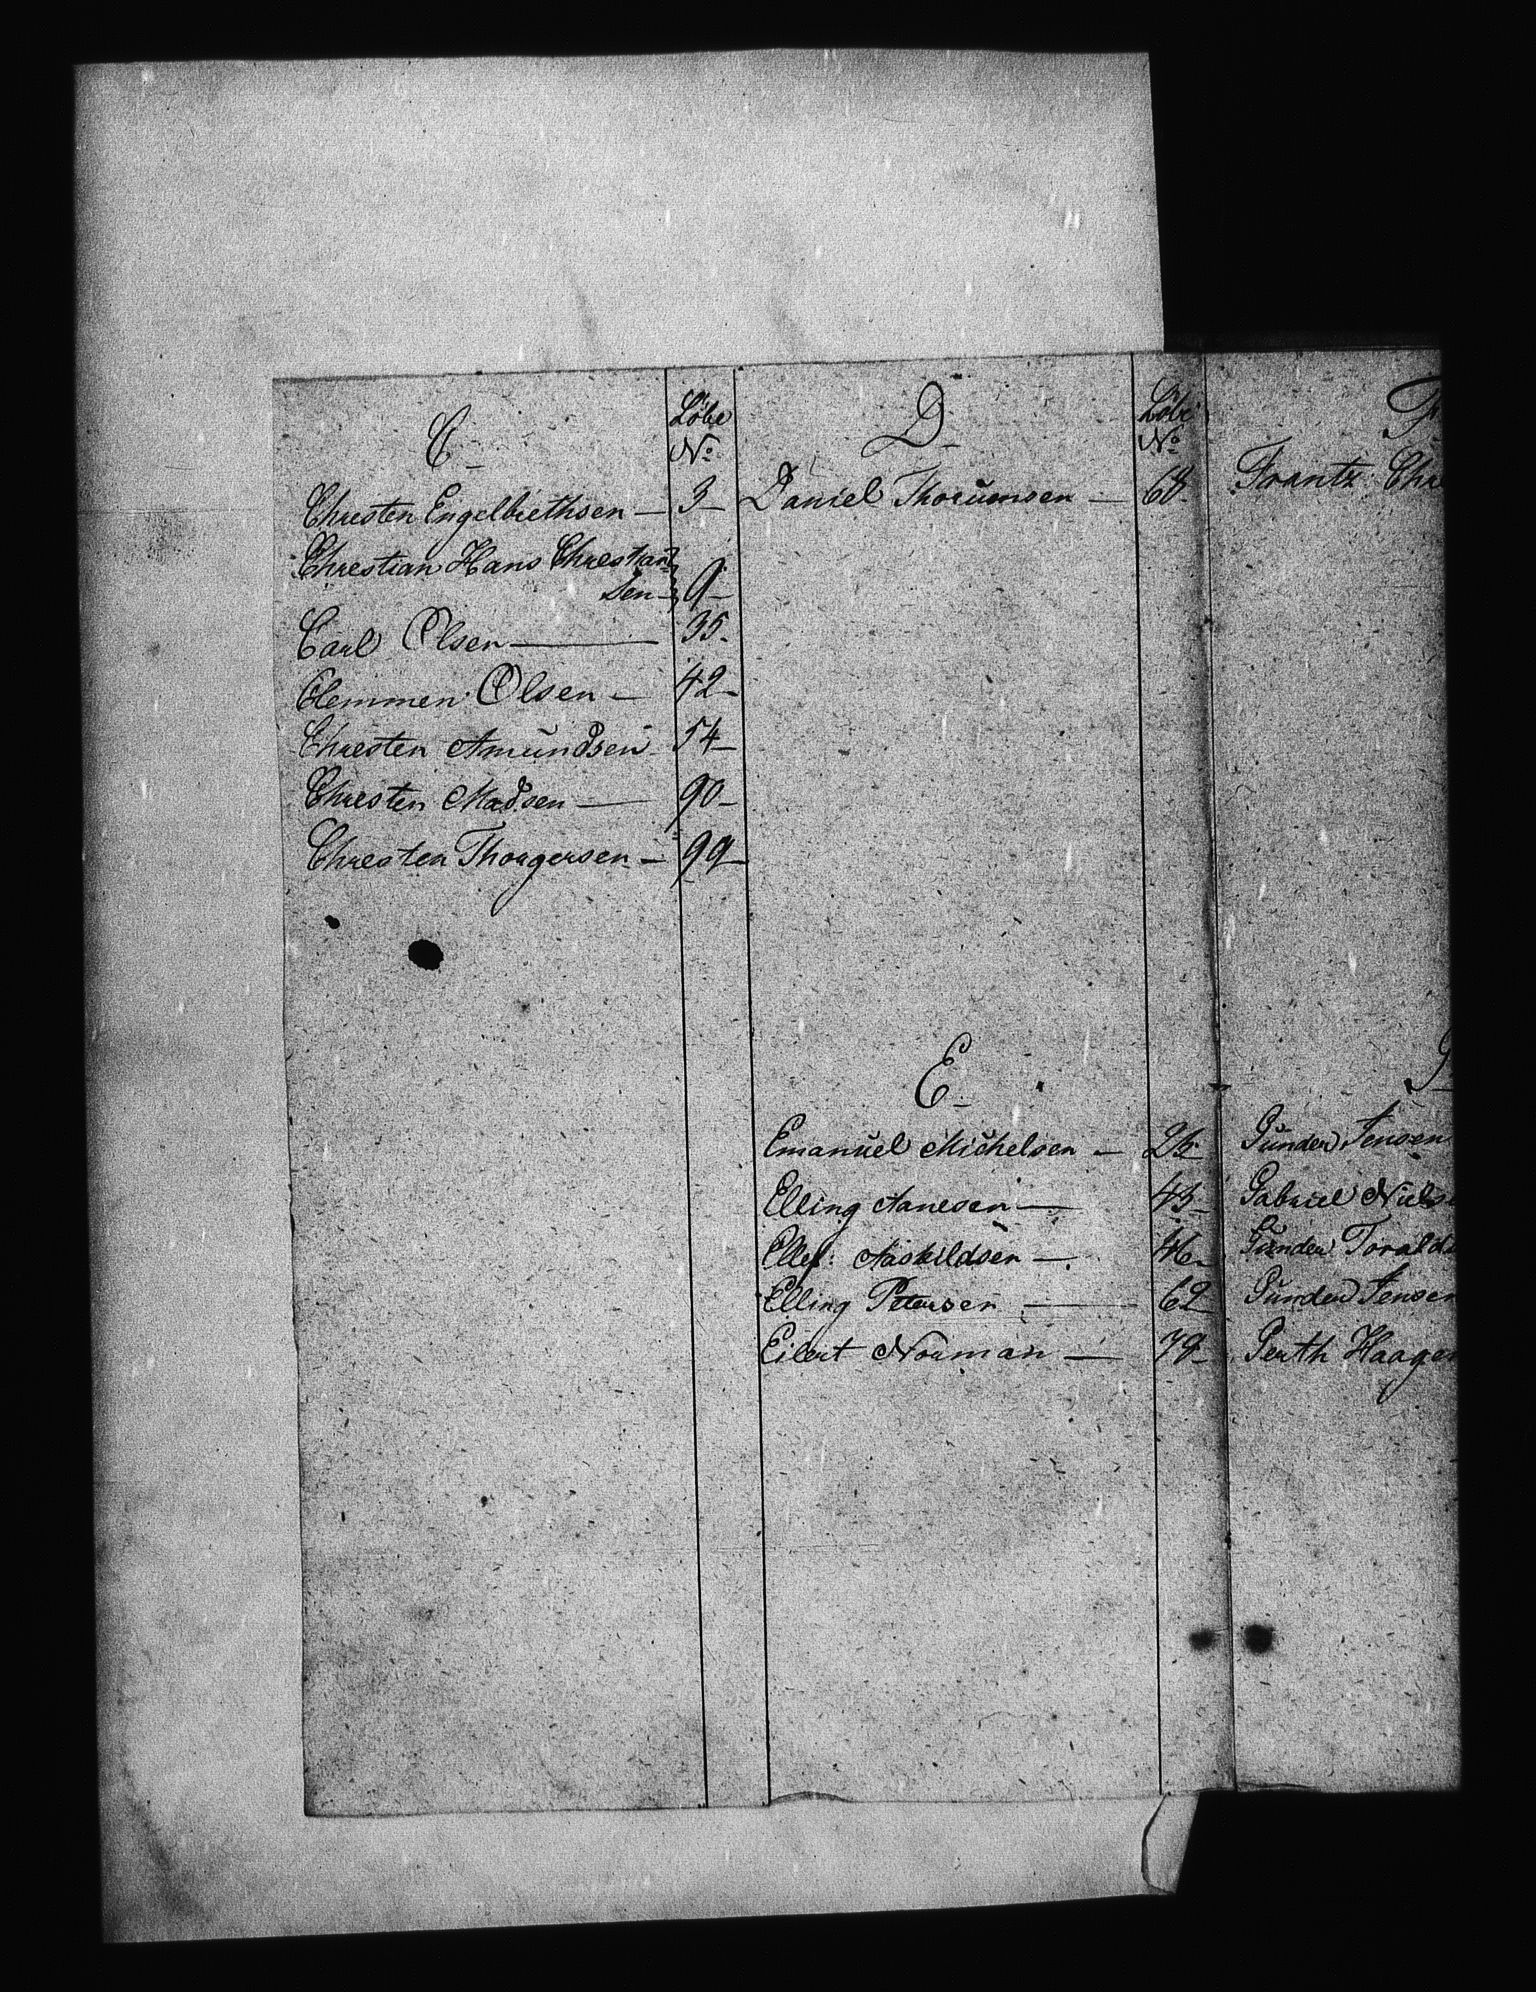 C
Löbe
No
Chresten Engelbrethsen — 3
Christian Hans Christian
sen — 9
Carl Olsen — 35
Clemmen Olsen — 42
Chresten Amundsen 54
Chresten Madsen — 90
Chresten Thorgersen — 99
D
Löbe
No
Daniel Thorumsen — 68
E
Emanuel Michelsen — 26
Elling Aanesen — 43
Ellef Aaskildsen — 46
Elling Petersen — 62
Eilert Norman — 79
F
Frantz Chre
G
Gunder Jensen
Gabriel Niels
Gunder Torald
Gunder Jensen
Perth Haagen